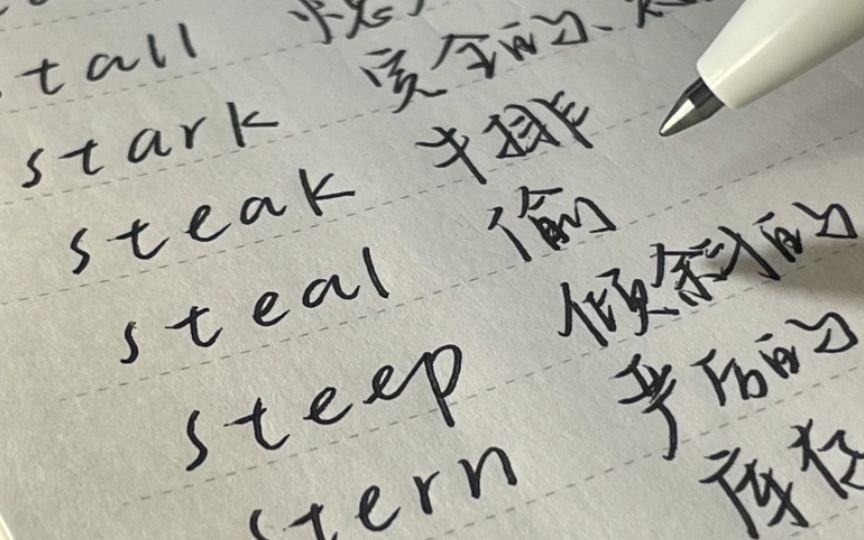 tall
stark 完全的、
steak 牛排
steal 偷
steep 倾斜的
stern 严厉的
库存